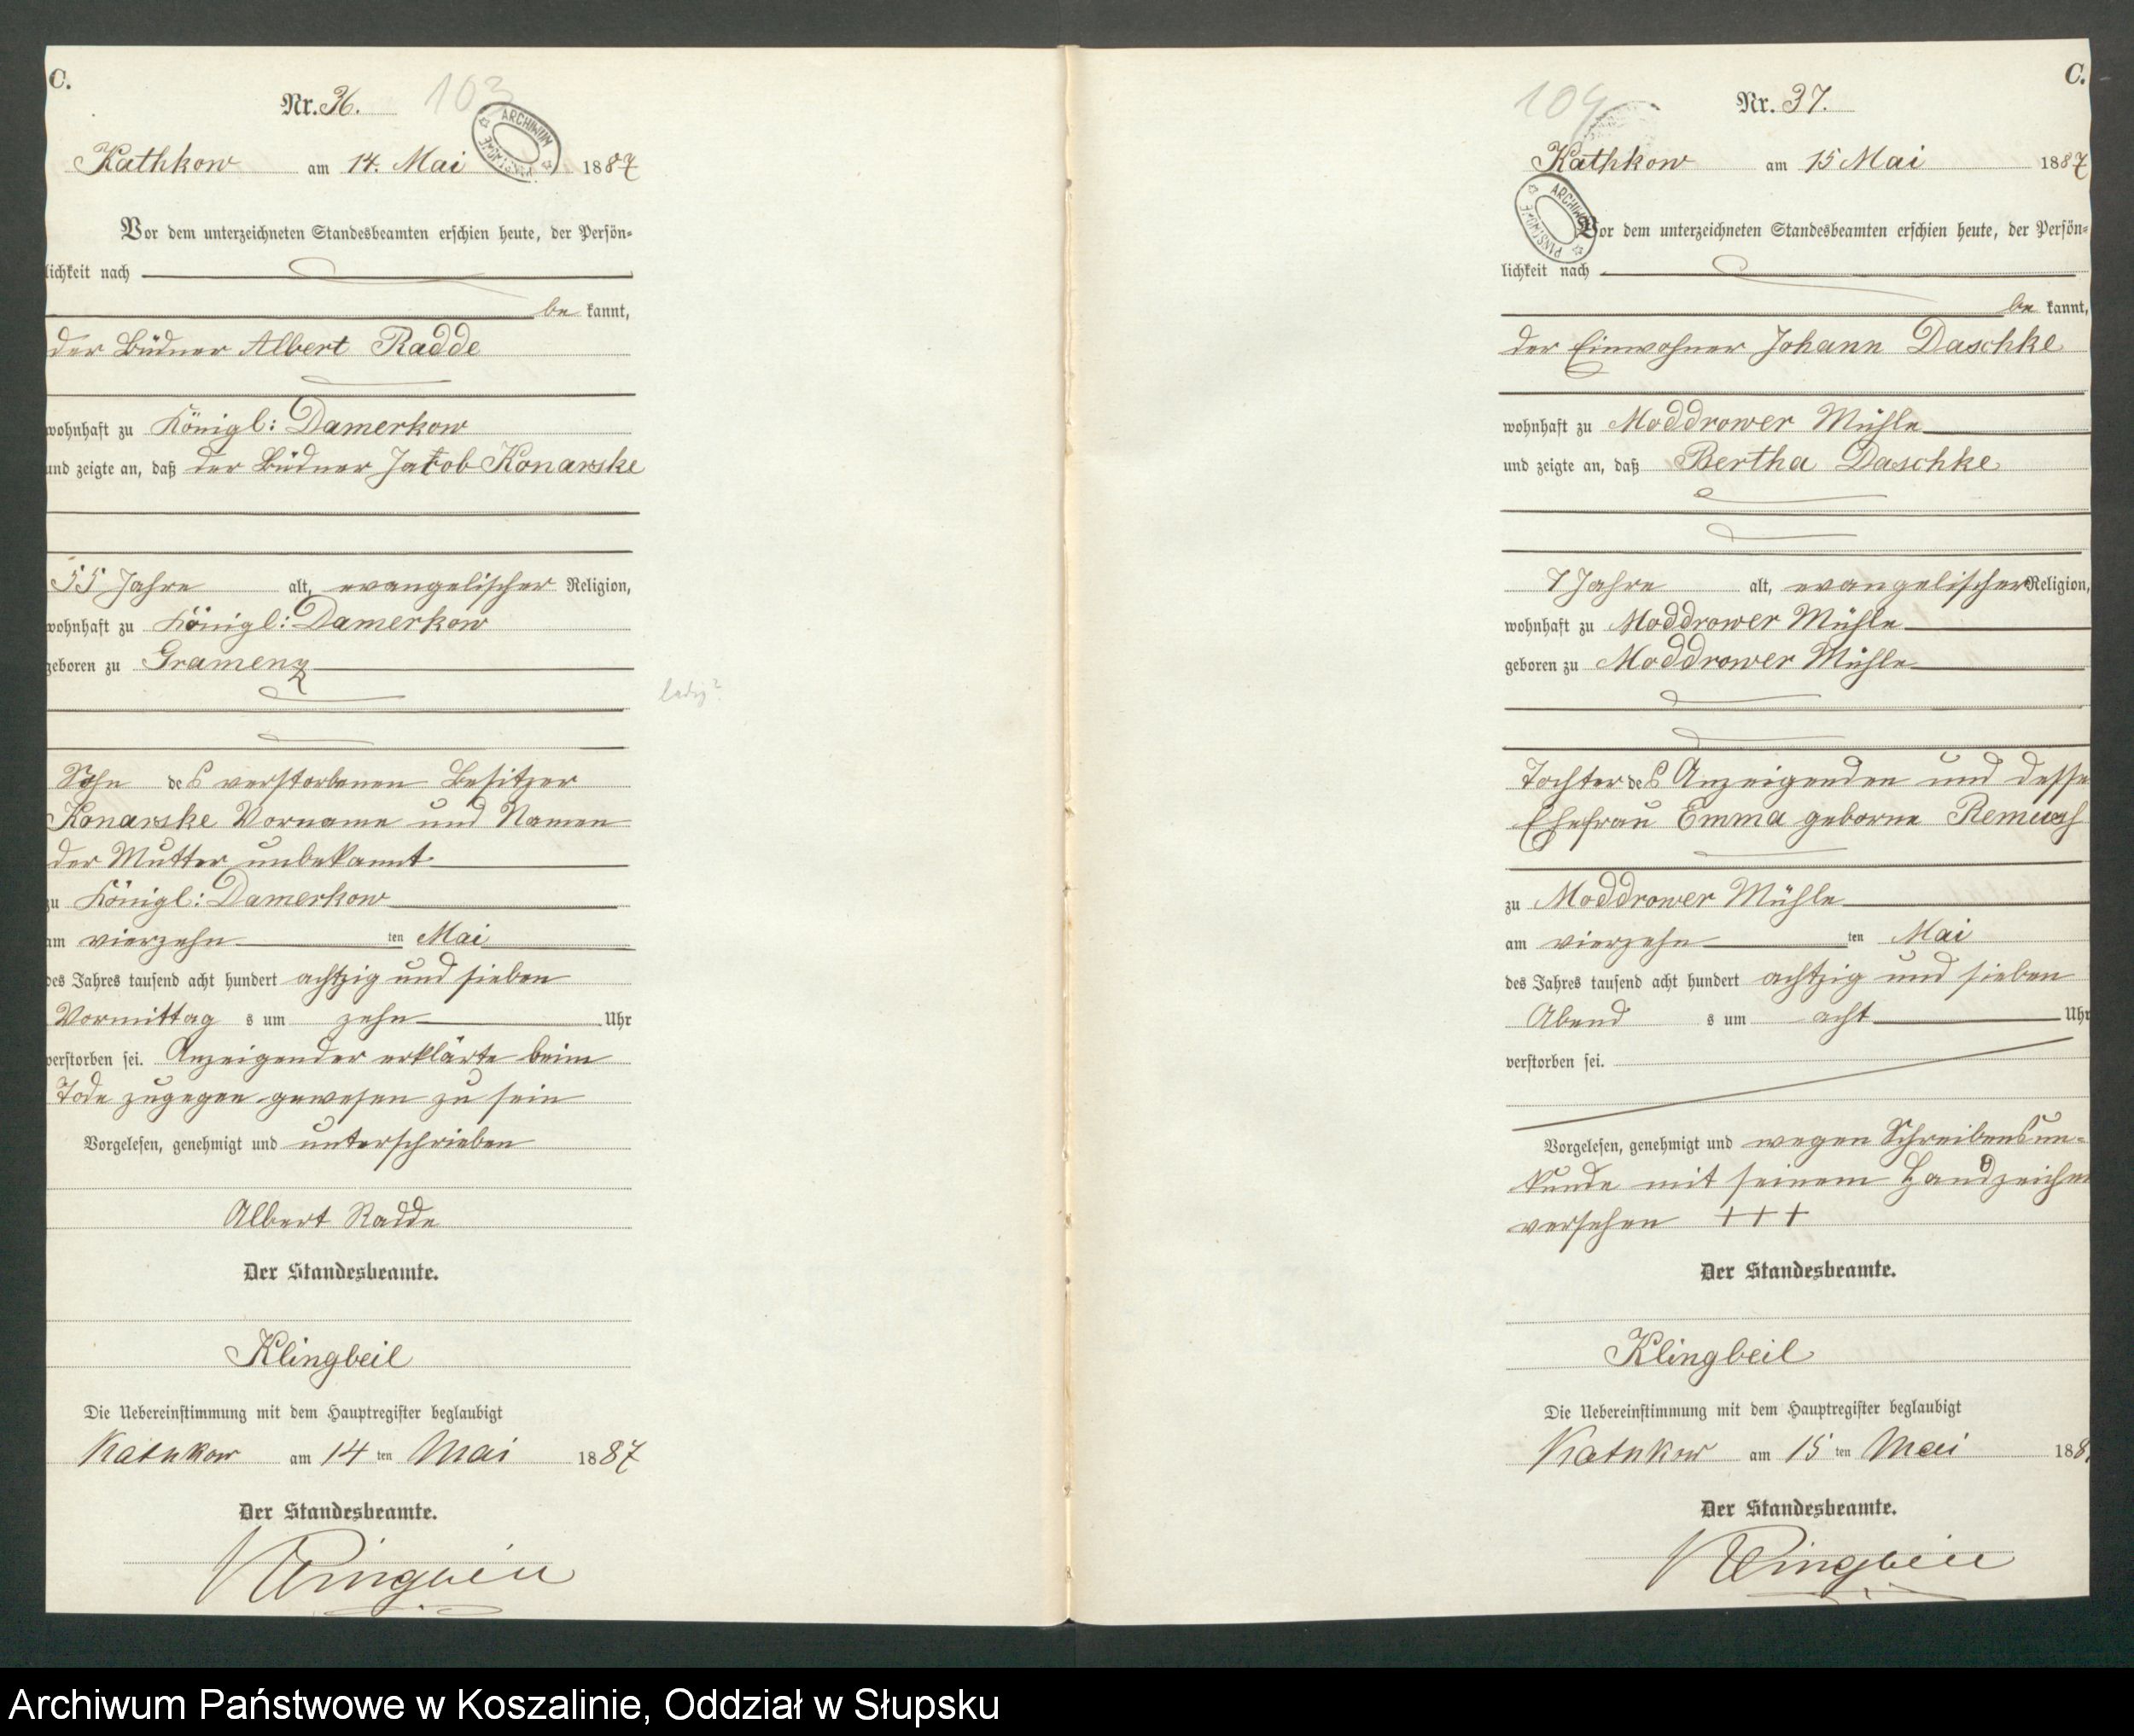 C.
Nr. 36.
103
ARCHIWUM PAŃSTWOWE
Kathkow am 14. Mai 1887
Vor dem unterzeichneten Standesbeamten erschien heute, der Persön-
lichkeit nach
be kannt,
der Büdner Albert Radde
wohnhaft zu Königl: Damerkow
und zeigte an, daß der Büdner Jakob Konarske
55 Jahre alt, evangelischer Religion,
wohnhaft zu Königl: Damerkow
geboren zu Gramenz
ledig?
Sohn des verstorbenen Besitzer
Konarske Vorname und Namen
der Mutter unbekannt
zu Königl: Damerkow
am vierzehn ten Mai
des Jahres tausend acht hundert achtzig und sieben
Vormittag s um zehn Uhr
verstorben sei. Anzeigender erklärte beim
Tode zugegen gewesen zu sein
Vorgelesen, genehmigt und unterschrieben
Albert Radde
Der Standesbeamte.
Klingbeil
Die Uebereinstimmung mit dem Hauptregister beglaubigt
Kathkow am 14 ten Mai 1887
Der Standesbeamte.
Klingbeil
C.
104
Nr. 37.
Kathkow am 15 Mai 1887
ARCHIWUM PAŃSTWOWE
Vor dem unterzeichneten Standesbeamten erschien heute, der Persön-
lichkeit nach
be kannt,
der Einwohner Johann Daschke
wohnhaft zu Moddrower Mühle
und zeigte an, daß Bertha Daschke
7 Jahre alt, evangelischer Religion,
wohnhaft zu Moddrower Mühle
geboren zu Moddrower Mühle
Tochter des Anzeigenden und desse
Ehefrau Emma geborne
zu Moddrower Mühle
am vierzehn ten Mai
des Jahres tausend acht hundert achtzig und sieben
Abend s um acht Uhr
verstorben sei.
Vorgelesen, genehmigt und wegen Schreibensun-
kunde mit seinem Handzeichen
versehen +++
Der Standesbeamte.
Klingbeil
Die Uebereinstimmung mit dem Hauptregister beglaubigt
Kathkow am 15 ten Mai 188
Der Standesbeamte.
Klingbeil
Archiwum Państwowe w Koszalinie, Oddział w Słupsku